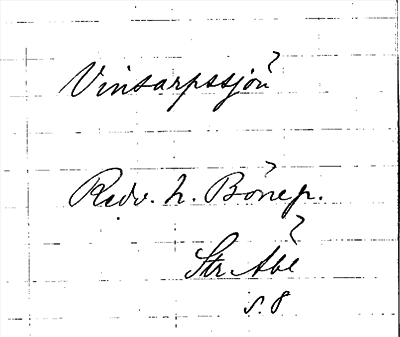 Vinsarpssjön
Redv. h. Bönep.
Str Åbl
s. 8